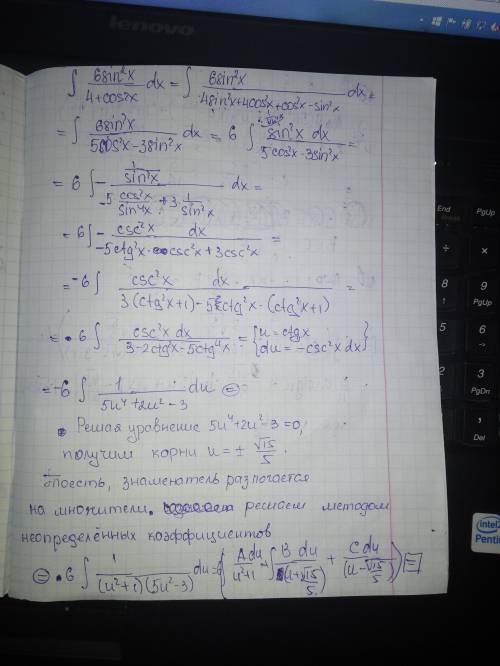 lenovo
∫ 6sin²x / (4+cos2x) dx = ∫ 6sin²x / (4sin²x+4cos²x+cos²x-sin²x) dx =
= ∫ 6sin²x / (5cos²x-3sin²x) dx = 6 ∫ sin²x dx / (5cos²x-3sin²x) =
= 6 ∫ - (1/sin²x) / (-5 cos²x/sin⁴x + 3·1/sin²x) dx =
= 6∫ - csc²x dx / (-5ctg²x·csc²x+3csc²x) =
= -6 ∫ csc²x dx / (3(ctg²x+1)-5ctg²x·(ctg²x+1)) =
= 6 ∫ csc²x dx / (3-2ctg²x-5ctg⁴x) = {u=ctgx
du=-csc²x dx}
= -6 ∫ 1 / (5u⁴+2u²-3) du =
Решая уравнение 5u⁴+2u²-3=0,
получим корни u = ± √15/5.
То есть, знаменатель разлогается
на множители. решаем методом
неопределённых коэффициентов
= 6 ∫ 1 / ((u²+1)(5u²-3)) du = 6( A du / (u²+1) + ∫ B du / (u+√15/5) + C du / (u-√15/5) ) =
End
PgUp
÷
×
8
9
PgUp
5
6
→
2
3
PgDn
Del
intel